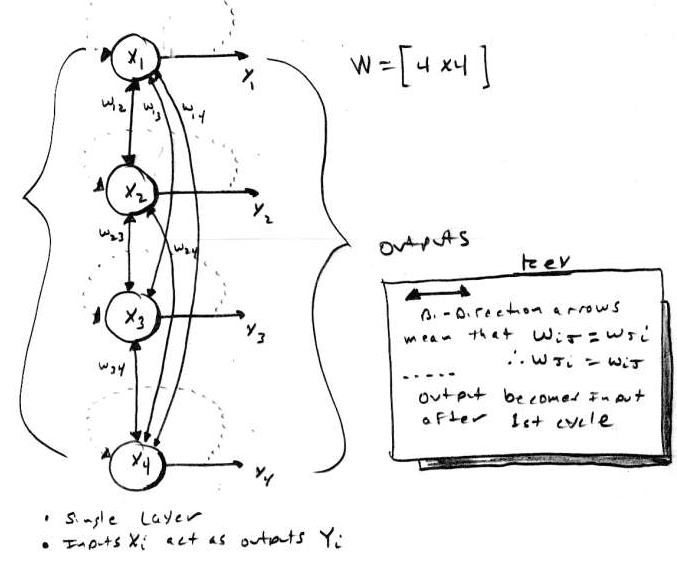 X1
Y1
W = [4 x 4]
W12 W13 W14
X2
Y2
W23 W24
OUTPUTS
Key
X3
Y3
Bi-Direction arrows
mean that Wij = Wji
∴ Wji = Wij
W34
.....
Output becomes Input
after 1st cycle
X4
Y4
• Single Layer
• Inputs Xi act as outputs Yi